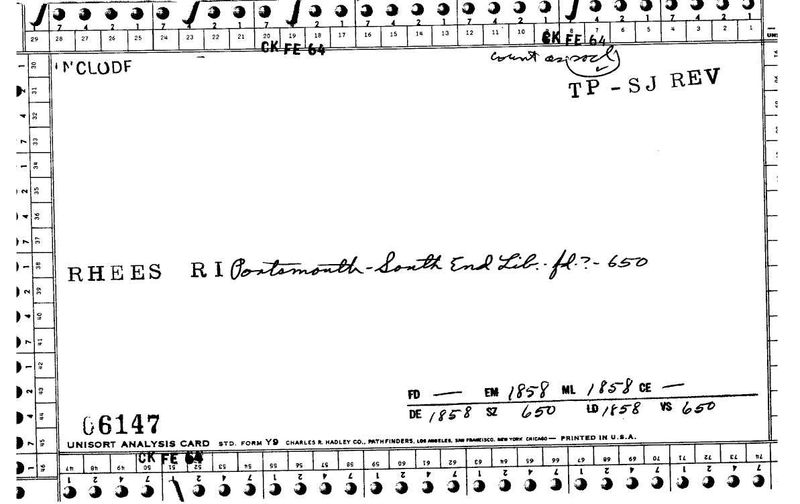 7 4 2 1 7 4 2 1 7 4 2 1 7 4 2 1
29 28 27 26 25 24 23 22 21 20 19 18 17 16 15 14 13 12 11 10 8 7 6 5 4 3 2 1
CK FE 64 CK FE 64
INCLUDE
count as socl
TP - SJ REV
30
31
32
33
34
35
36
37
38
39
40
41
42
43
44
45
46
RHEES RI Portsmouth - South End Lib. fd. ? - 650
FD — EM 1858 ML 1858 CE —
DE 1858 SZ 650 LD 1858 VS 650
06147
UNISORT ANALYSIS CARD STD. FORM Y9 CHARLES R. HADLEY CO., PATHFINDERS, LOS ANGELES, SAN FRANCISCO, NEW YORK CHICAGO — PRINTED IN U.S.A.
CK FE 64
47 48 49 50 51 52 53 54 55 56 57 58 59 60 61 62 63 64 65 66 67 68 69 70 71 72 73 74